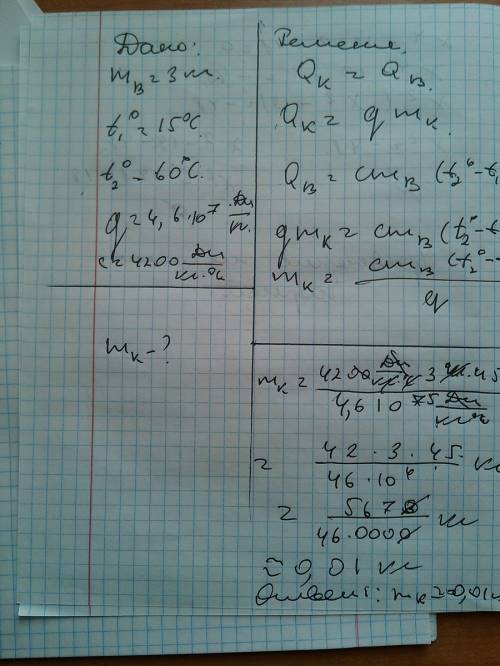 Дано:
m в = 3 л.
t₁° = 15°C.
t₂° - 60°C.
q = 4,6·10⁷ Дж/кг.
c = 4200 Дж/кг·°C
m к - ?
Решение.
Q к = Q в.
Q к = q m к.
Q в = c m в (t₂° - t₁
q m к = c m в (t₂° - t
m к = c m в (t₂° - / q
m к = 4200 Дж/кг·°C · 3 кг · 45 / 4,6 10⁷ Дж/кг
= 42 · 3 · 45 / 46 · 10⁴ кг
= 5670 / 46·0000 кг
≈ 0,01 кг
Ответ: m к = 0,01 к